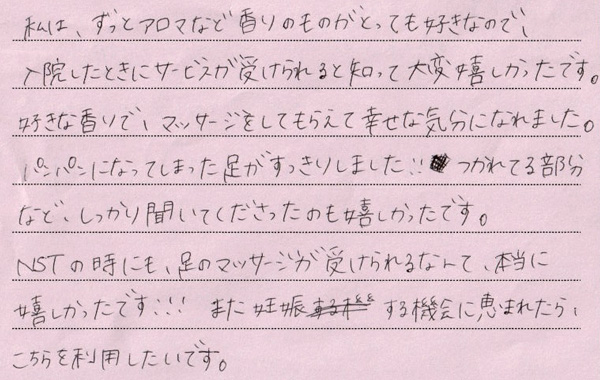 私は、ずっとアロマなど香りのものがとっても好きなので、
入院したときにサービスが受けられると知って大変嬉しかったです。
好きな香りで、マッサージをしてもらえて幸せな気分になれました。
パンパンになってしまった足がすっきりしました!! つかれてる部分
など、しっかり聞いてくださったのも嬉しかったです。
NSTの時にも、足のマッサージが受けられるなんて、本当に
嬉しかったです!!! また妊娠する機会に恵まれたら、
こちらを利用したいです。